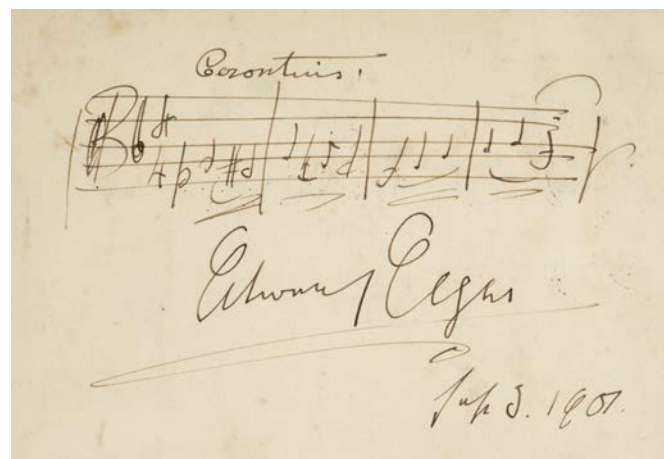 Gerontius.
Edward Elgar
Sep 3. 1901.